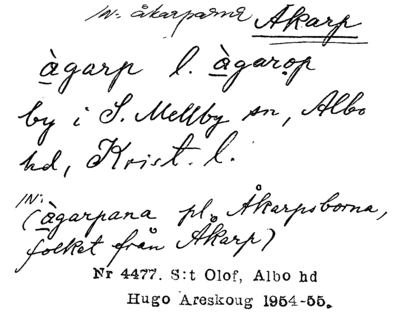 IN: åkarparna Åkarp
àgarp l. àgarọp
by i S. Mellby sn, Albo
hd, Krist. l.
IN:
(àgarpana pl. Åkarpsborna,
folket från Åkarp)
Nr 4477. S:t Olof, Albo hd
Hugo Areskoug 1954-55.